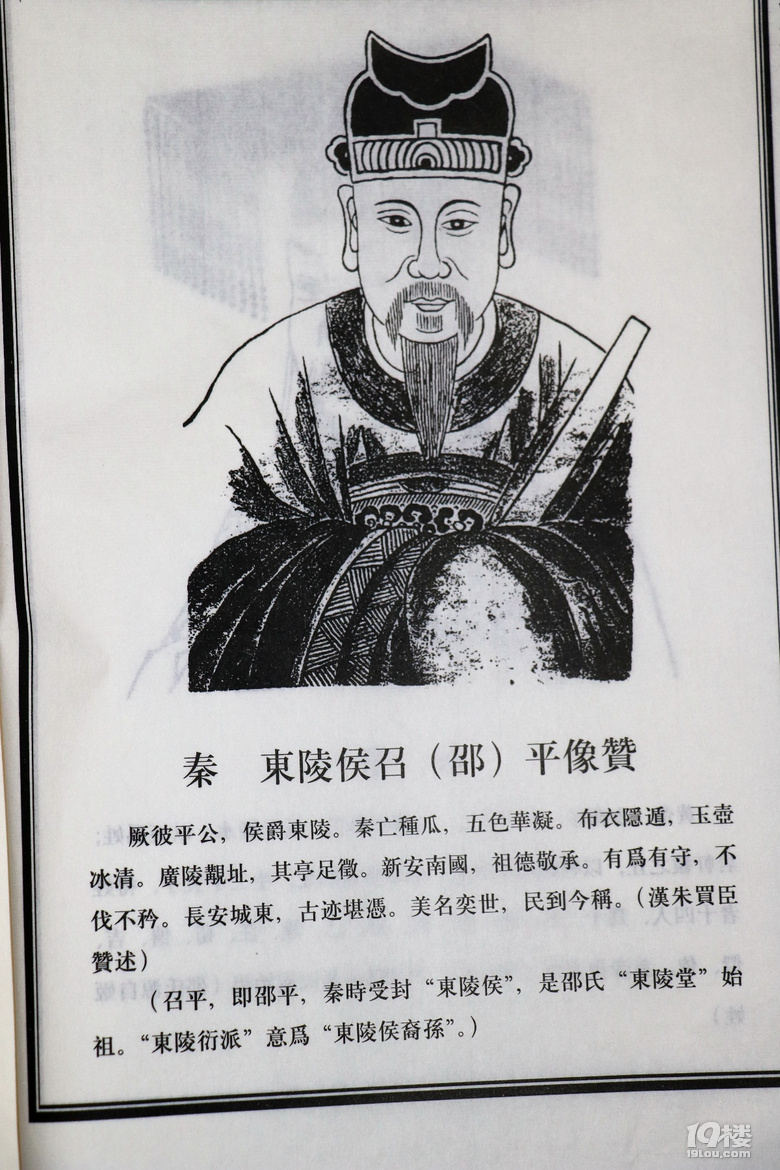 秦　東陵侯召（邵）平像贊
厥彼平公，侯爵東陵。秦亡種瓜，五色華凝。布衣隱遁，玉壺
冰清。廣陵觀址，其亭足徵。新安南國，祖德敬承。有爲有守，不
伐不矜。長安城東，古迹堪憑。美名奕世，民到今稱。（漢朱買臣
贊述）
（召平，即邵平，秦時受封“東陵侯”，是邵氏“東陵堂”始
祖。“東陵衍派”意爲“東陵侯裔孫”。）
19楼
19lou.com